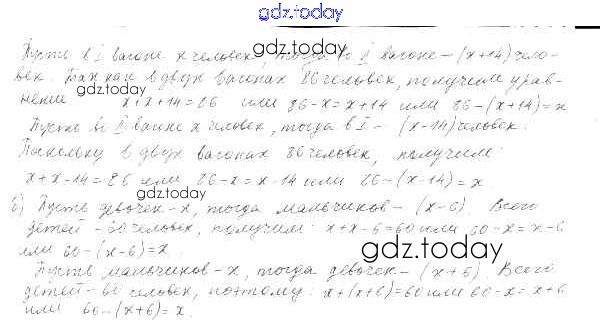 gdz.today
Пусть в I вагоне x человек, тогда во II вагоне – (x+14) чело-
век. Так как в двух вагонах 86 человек, получим урав-
нение x+x+14=86 или 86-x=x+14 или 86-(x+14)=x
Пусть во II вагоне x человек, тогда в I – (x-14) человек.
Поскольку в двух вагонах 86 человек, получим:
x+x-14=86 или 86-x=x-14 или 86-(x-14)=x.
б) Пусть девочек - x, тогда мальчиков - (x-6). Всего
детей - 60 человек, получим: x+x-6=60 или 60-x=x-6
или 60-(x-6)=x.
Пусть мальчиков - x, тогда девочек - (x+6). Всего
детей - 60 человек, поэтому: x+(x+6)=60 или 60-x=x+6
или 60-(x+6)=x.
gdz.today
gdz.today
gdz.today
gdz.today